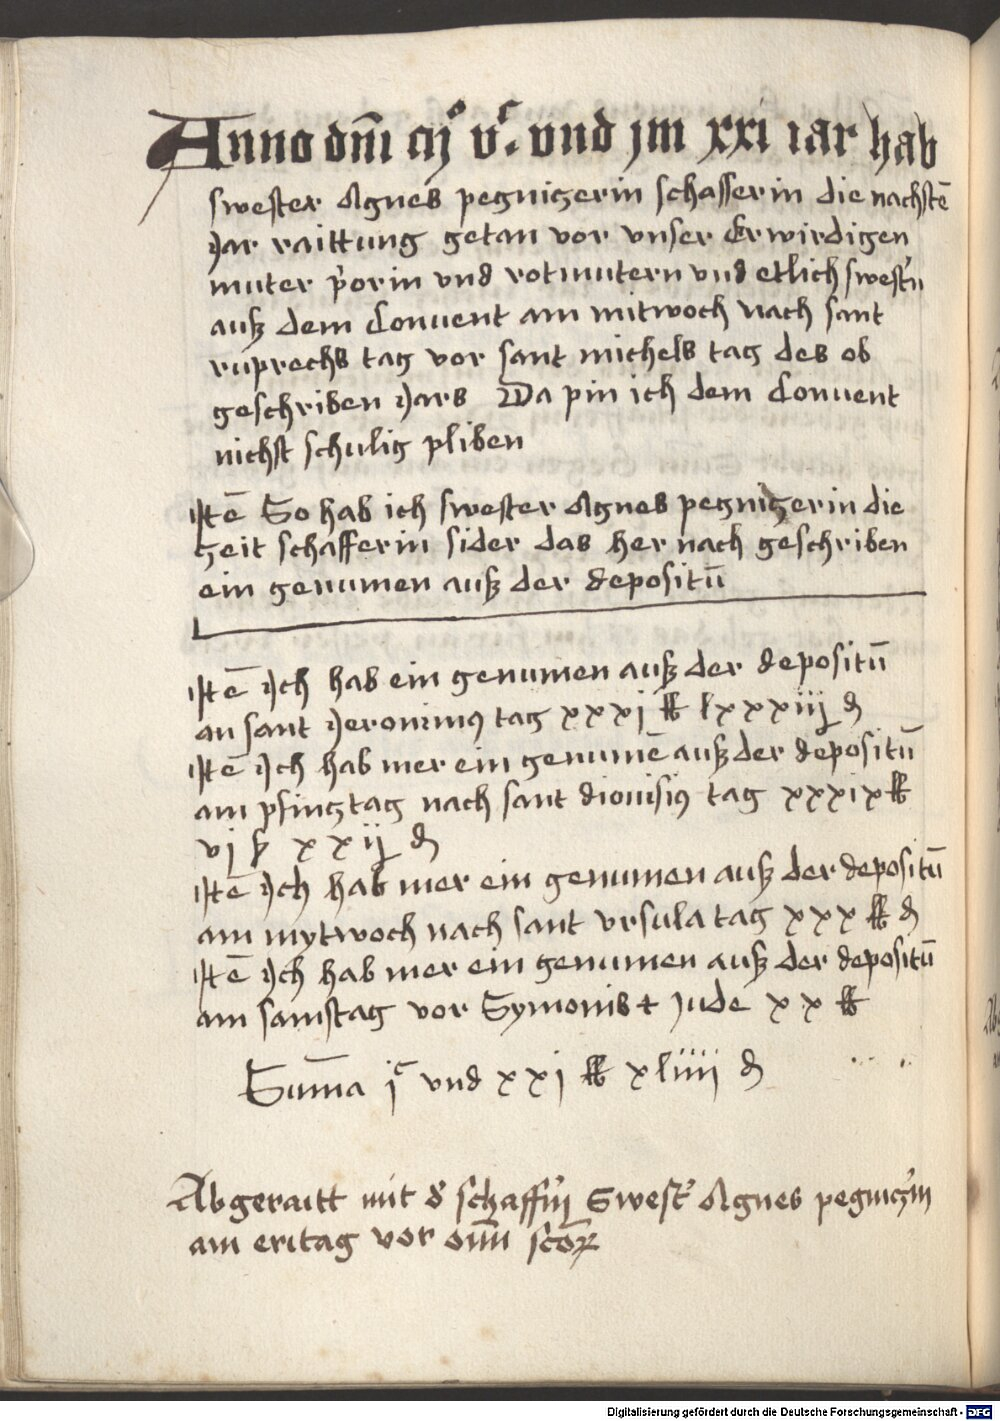 Anno dm̄ cıȷ̊ vᶜ. vnd jm xxi iar hab
swester Agnes pegniczerin schafferin die nachstē
Jar raittung getan vor vnser Erwirdigen
muter p̃orin vnd rotmutern vnd etlich swest̃n
auß dem Conuent am mitwoch nach sant
ruprechs tag vor sant michels tag des ob
geschriben Jars Da pin ich dem Conuent
nichst schulig pliben
Itē So hab ich swester Agnes pegniczerin die
zeit schafferin sider das her nach geschriben
ein genumen auß der depositū
Itē Ich hab ein genumen auß der depositū
an sant Jeronimꝰ tag xxxj ℔ lxxxiiij ₰
Itē Ich hab mer ein genumē auß der depositū
am pfincztag nach sant dionisiꝰ tag xxxix ℔
vj ß xxij ₰
Itē Ich hab mer ein genumen auß der depositū
am mytwoch nach sant vrsula tag xxx ℔ ₰
Itē Ich hab mer ein genumen auß der depositū
am samstag vor Symonis + Jude xx ℔
Sum̄a jᶜ vnd xxj ℔ xliiij ₰
Abgeraitt mit d̕ schaff̕in Swest̕ Agnes pegnicz̕in
am eritag vor om̄ scōꝝ
Digitalisierung gefördert durch die Deutsche Forschungsgemeinschaft - DFG